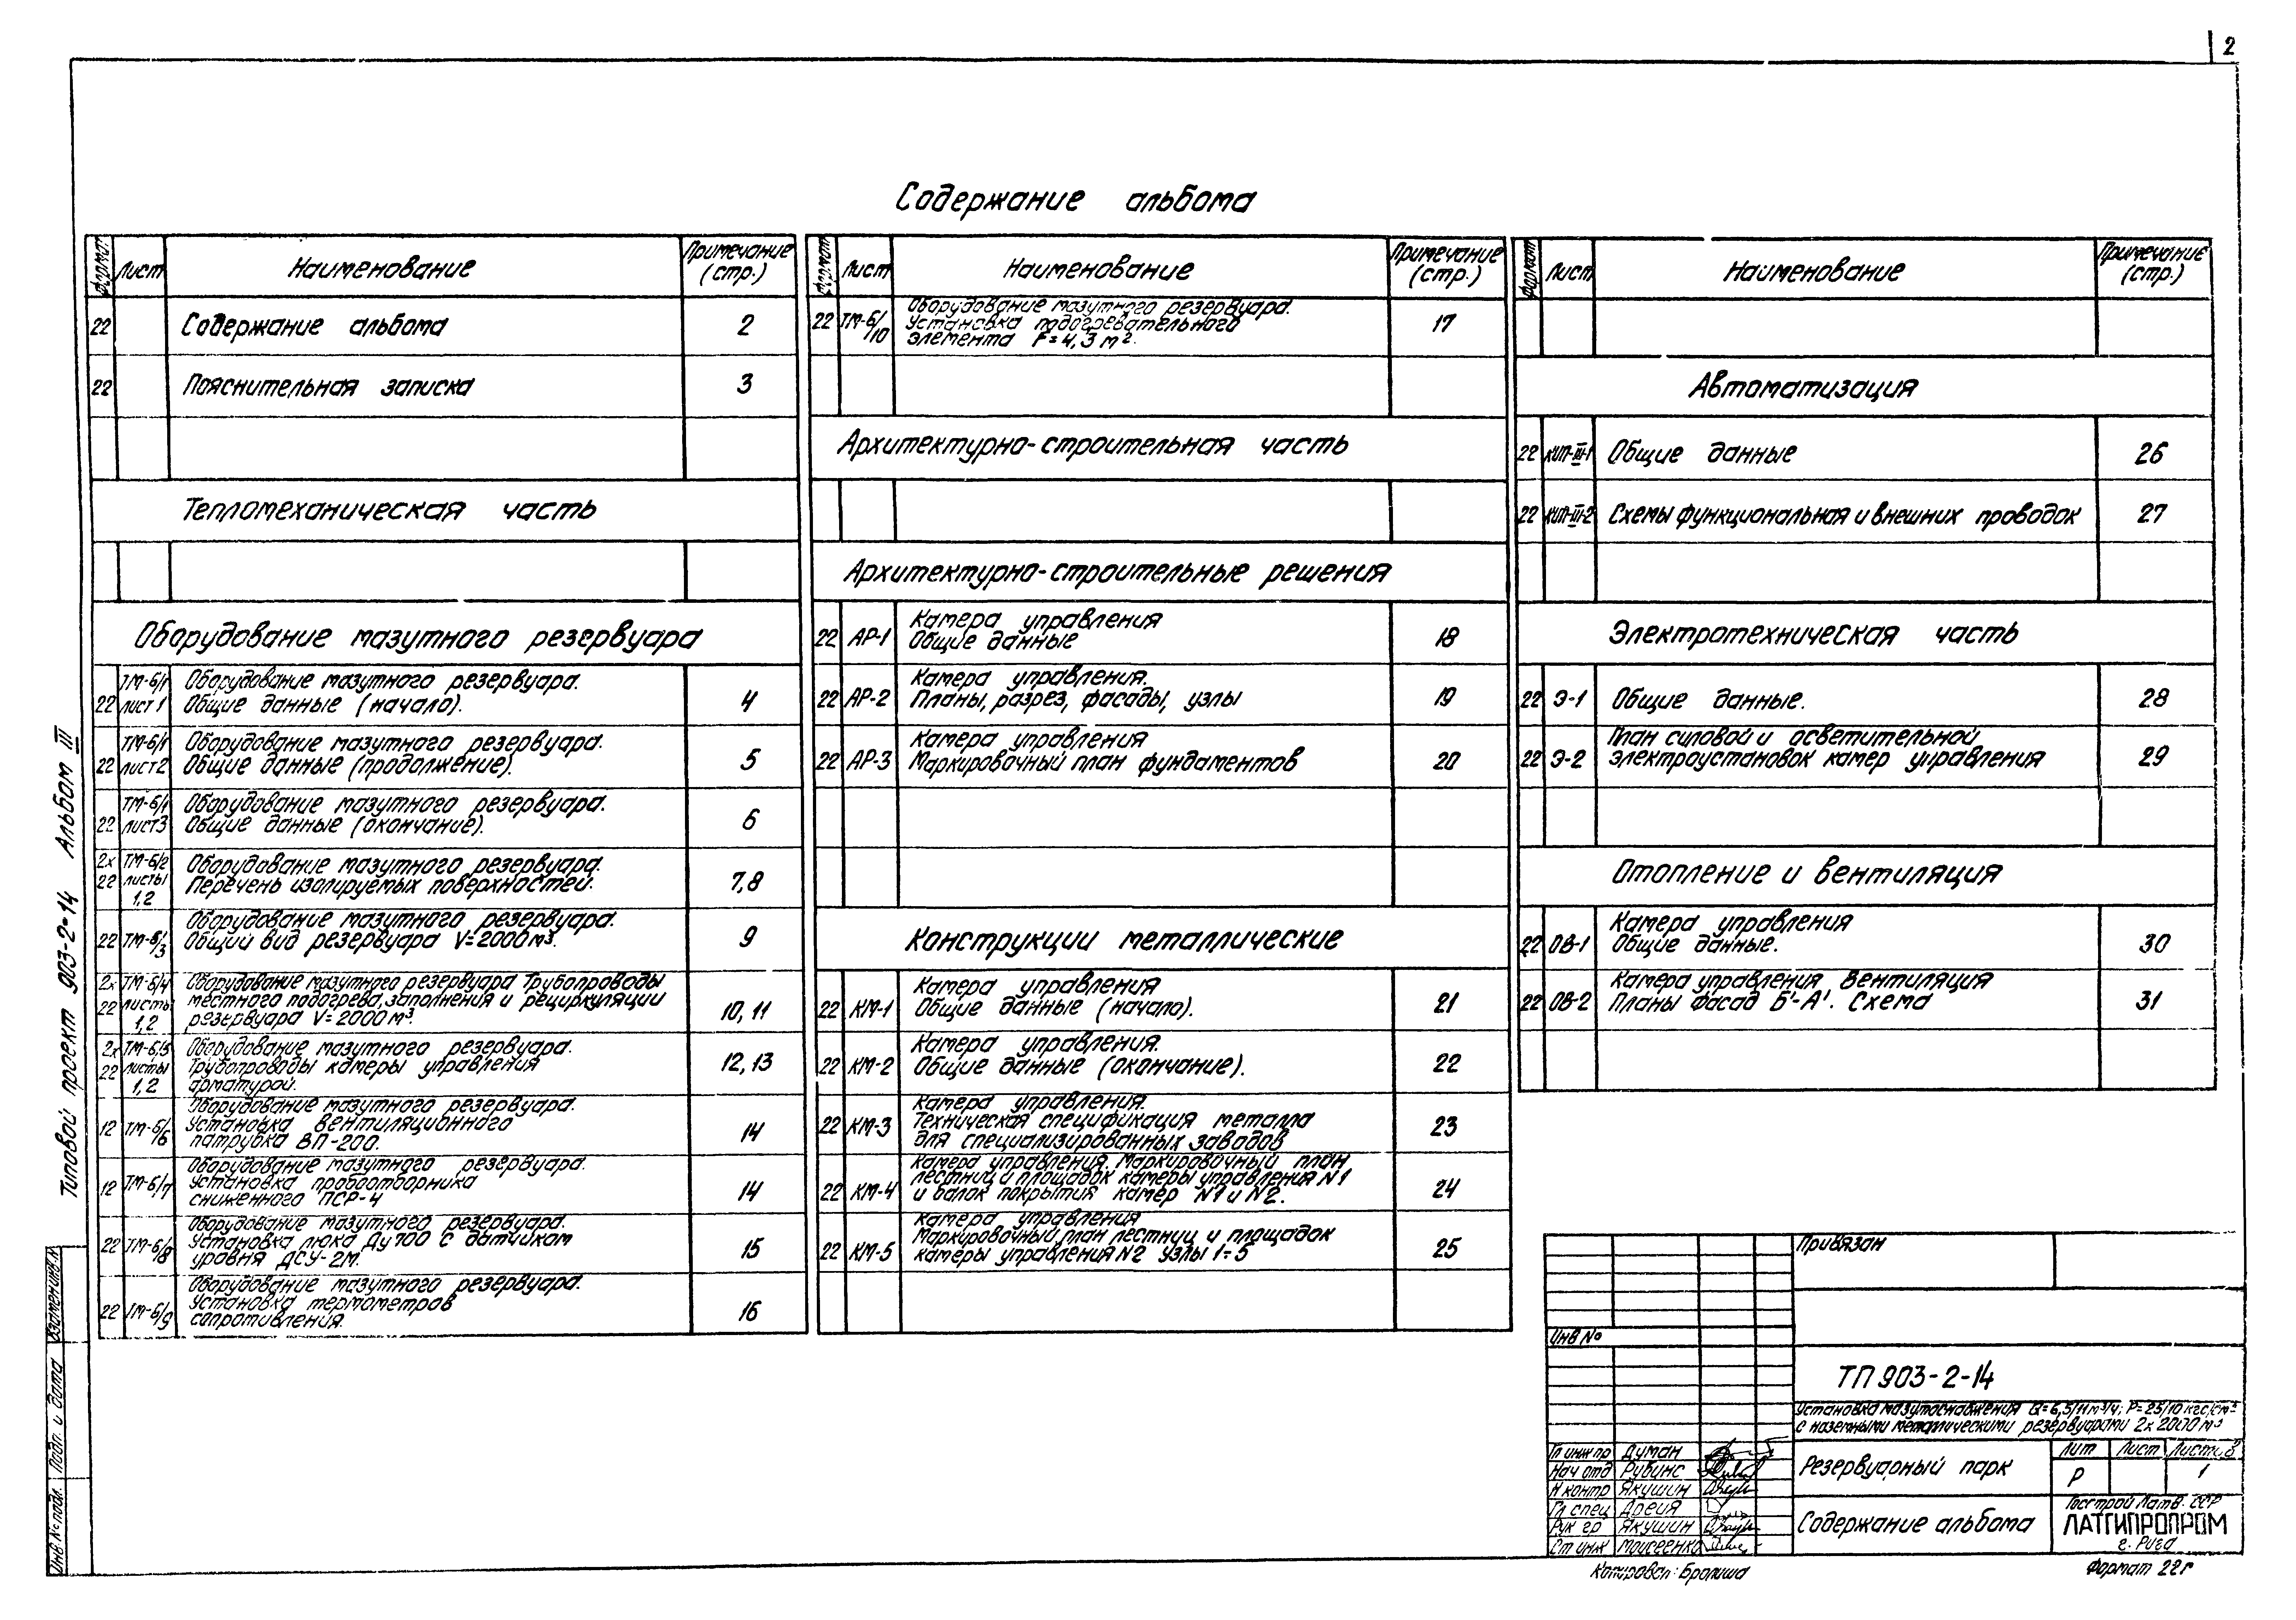 2
Содержание альбома
Формат Лист Наименование Примечание (стр.)
22 Содержание альбома 2
22 Пояснительная записка 3
Тепломеханическая часть
Оборудование мазутного резервуара
22 ТМ-6/1 лист 1 Оборудование мазутного резервуара.
Общие данные (начало). 4
22 ТМ-6/1 лист 2 Оборудование мазутного резервуара.
Общие данные (продолжение). 5
22 ТМ-6/1 лист 3 Оборудование мазутного резервуара.
Общие данные (окончание). 6
2х22 ТМ-6/2 листы 1,2 Оборудование мазутного резервуара.
Перечень изолируемых поверхностей. 7,8
22 ТМ-6/3 Оборудование мазутного резервуара.
Общий вид резервуара V=2000м³. 9
2х22 ТМ-6/4 листы 1,2 Оборудование мазутного резервуара Трубопроводы
местного подогрева, заполнения и рециркуляции
резервуара V=2000м³. 10, 11
2х22 ТМ-6/5 листы 1,2 Оборудование мазутного резервуара.
Трубопроводы камеры управления
арматурой. 12, 13
12 ТМ-6/6 Оборудование мазутного резервуара.
Установка вентиляционного
патрубка ВП-200. 14
12 ТМ-6/7 Оборудование мазутного резервуара.
Установка пробоотборника
сниженного ПСР-4 14
22 ТМ-6/8 Оборудование мазутного резервуара.
Установка люка Ду700 с датчиком
уровня ДСУ-2М. 15
22 ТМ-6/9 Оборудование мазутного резервуара.
Установка термометров
сопротивления. 16
Формат Лист Наименование Примечание (стр.)
22 ТМ-6/10 Оборудование мазутного резервуара.
Установка подогревательного
элемента F=4,3 м². 17
Архитектурно-строительная часть
Архитектурно-строительные решения
22 АР-1 Камера управления
Общие данные 18
22 АР-2 Камера управления.
Планы, разрез, фасады, узлы 19
22 АР-3 Камера управления
Маркировочный план фундаментов 20
Конструкции металлические
22 КМ-1 Камера управления
Общие данные (начало). 21
22 КМ-2 Камера управления.
Общие данные (окончание). 22
22 КМ-3 Камера управления.
Техническая спецификация металла
для специализированных заводов 23
22 КМ-4 Камера управления. Маркировочный план
лестниц и площадок камеры управления N1
и балок покрытия камер N1 и N2. 24
22 КМ-5 Камера управления
Маркировочный план лестниц и площадок
камеры управления N2 Узлы 1÷5 25
Формат Лист Наименование Примечание (стр.)
Автоматизация
22 КИП-III-1 Общие данные 26
22 КИП-III-2 Схемы функциональная и внешних проводок 27
Электротехническая часть
22 Э-1 Общие данные. 28
22 Э-2 План силовой и осветительной
электроустановок камер управления 29
Отопление и вентиляция
22 ОВ-1 Камера управления
Общие данные. 30
22 ОВ-2 Камера управления Вентиляция
Планы Фасад Б'-А'. Схема 31
Типовой проект 903-2-14 Альбом III
Инв № подл. Подп. и дата Взамен инв №
Привязан
Инв №
ТП 903-2-14
Установка мазутоснабжения Q=6,5/11м³/ч; P=25/10 кгс/см²
с наземными металлическими резервуарами 2х2000м³
Гл инж пр Думан
Нач отд Рубинс
Н контр Якушин
Гл спец Дрейя
Рук гр Якушин
Ст инж Моисеенко
Резервуарный парк
Лит Лист Листов
Р 1
Содержание альбома
Госстрой Латв. ССР
ЛАТГИПРОПРОМ
г. Рига
Копировал: Бролиша
Формат 22г